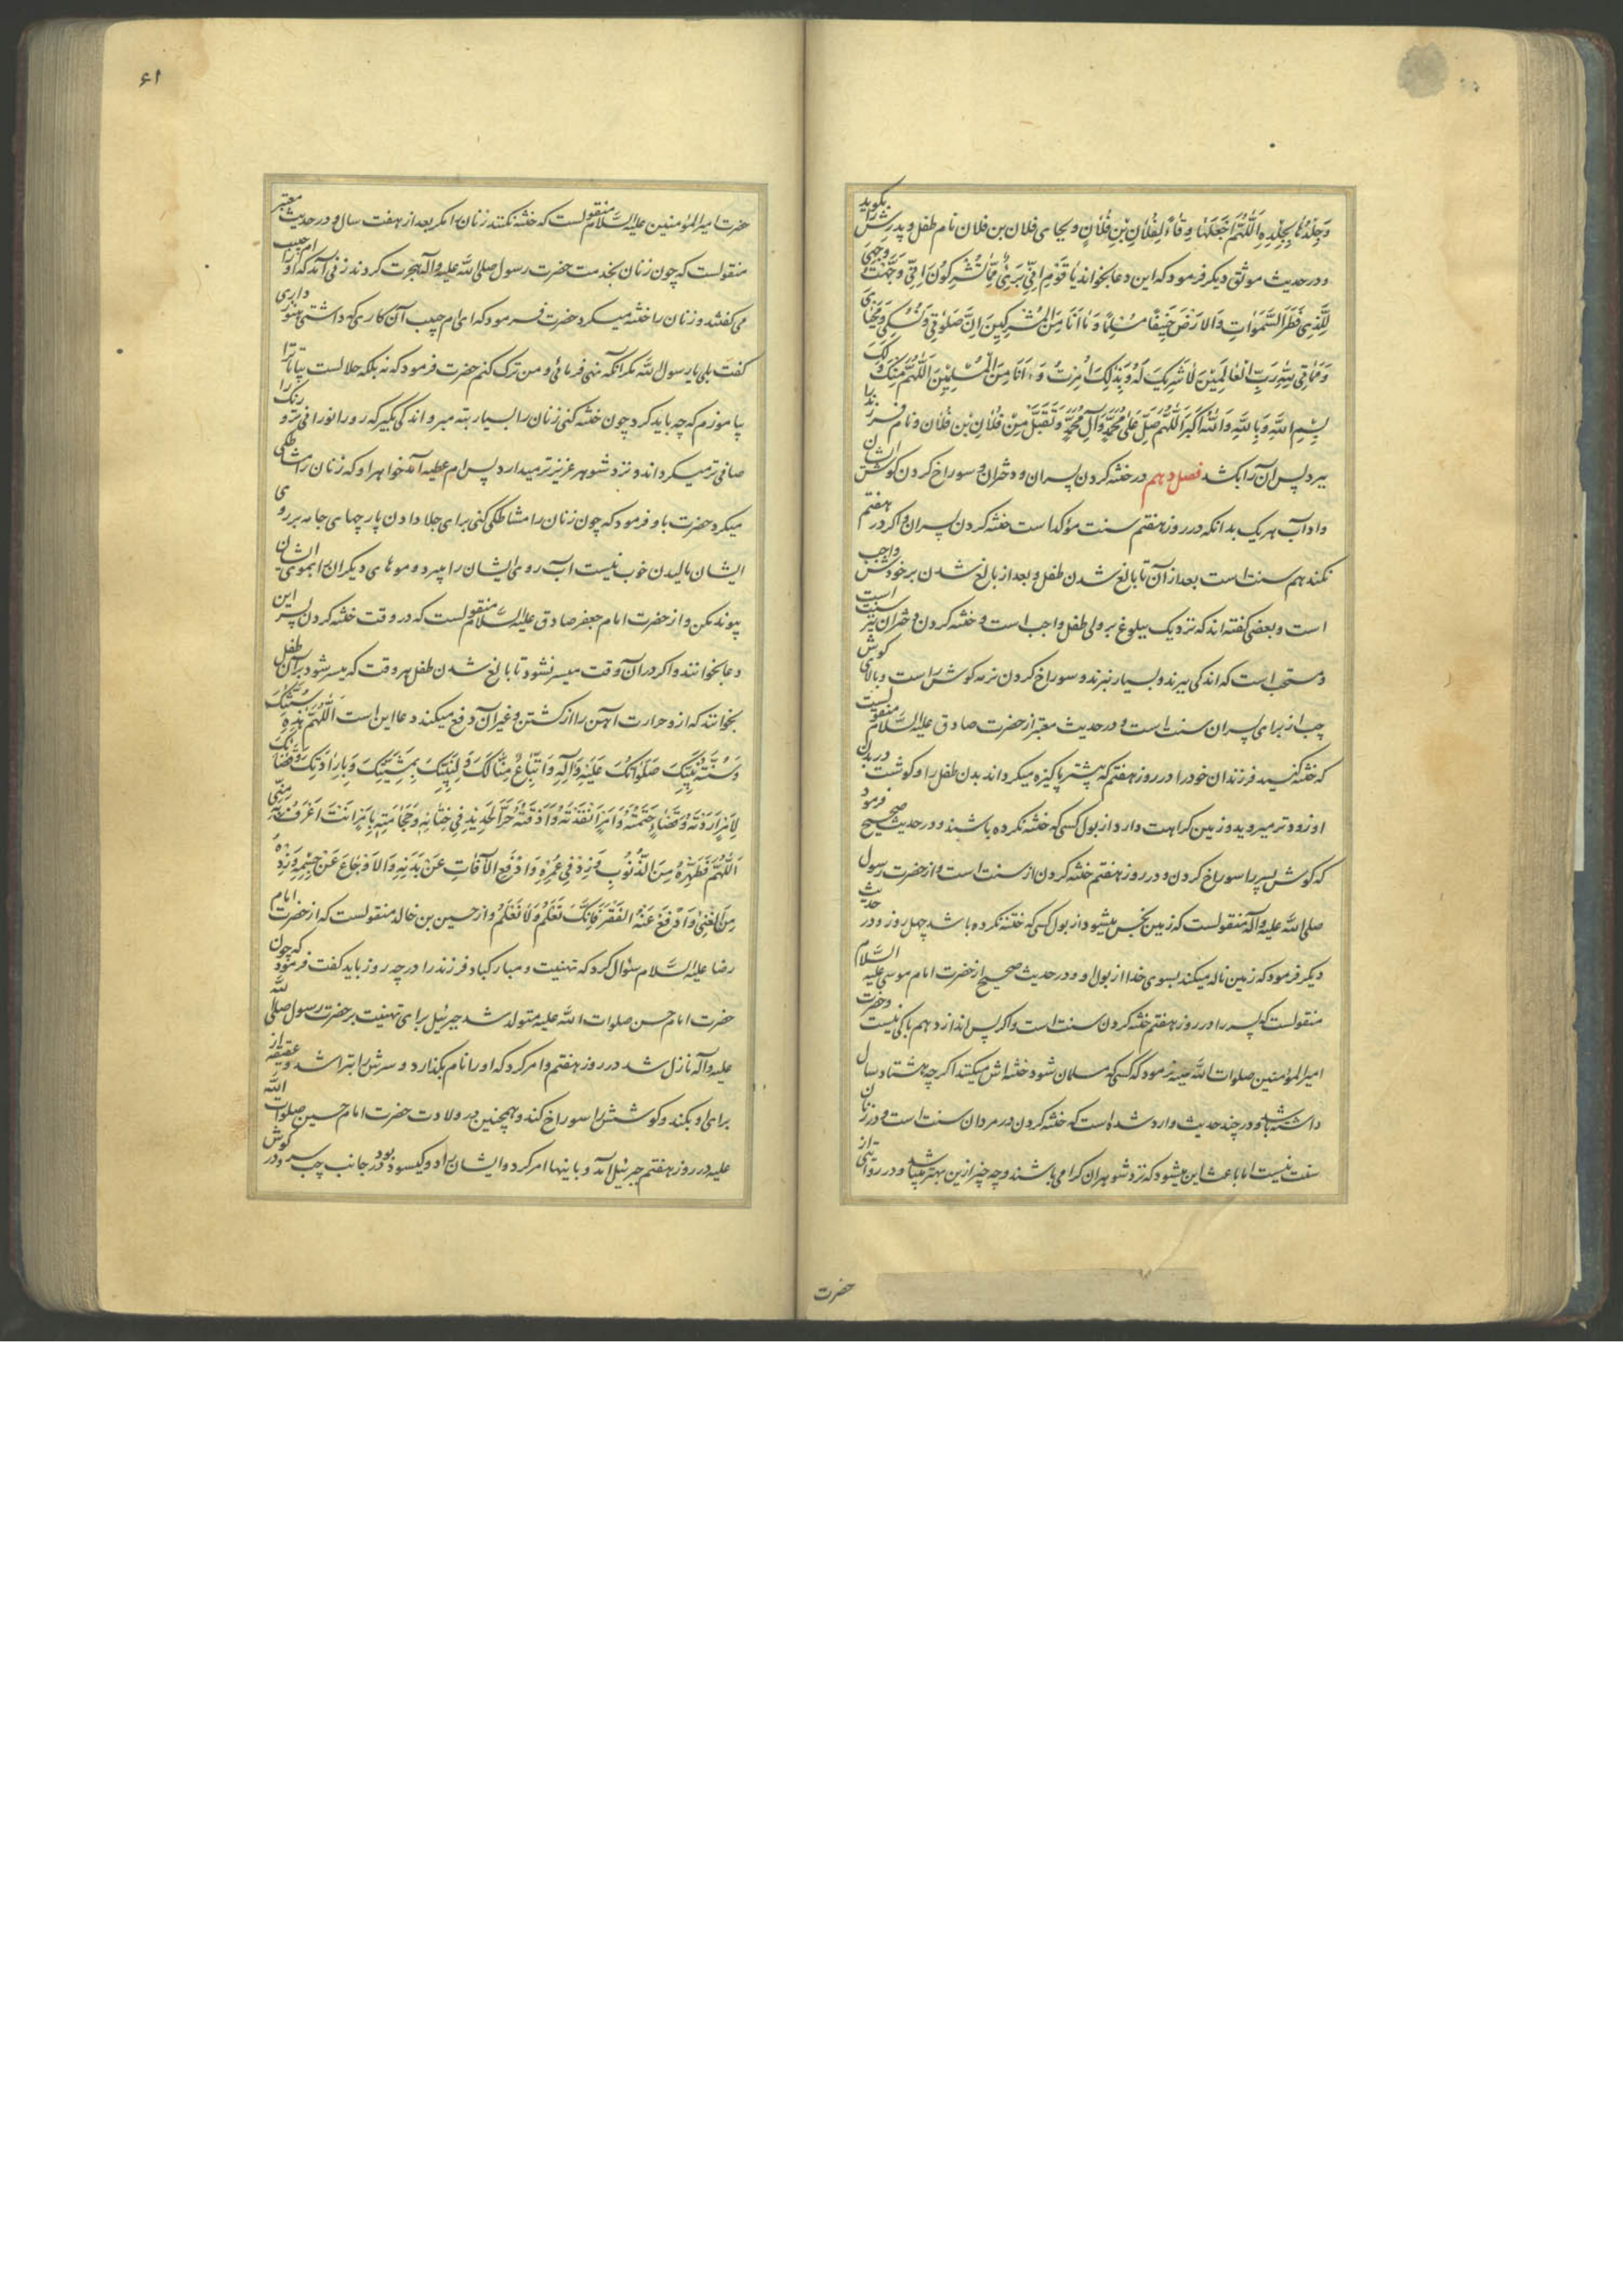 وَجِلْدُهَا بِجِلْدِهِ اَللّٰهُمَّ اجْعَلْهَا وِقَاءً لِفُلَانِ بْنِ فُلَانٍ و بجای فلان بن فلان نام طفل و پدرش را بکوید
و در حدیث موثق دیکر فرمود که این دعا بخواند یَا قَوْمِ اِنِّی بَرِیءٌ مِمَّا تُشْرِکُونَ اِنِّی وَجَّهْتُ وَجْهِیَ
لِلَّذِی فَطَرَ السَّمٰوَاتِ وَالْاَرْضَ حَنِیفًا مُسْلِمًا وَمَا اَنَا مِنَ الْمُشْرِکِینَ اِنَّ صَلٰوتِی وَنُسُکِی وَمَحْیَایَ
وَمَمَاتِی لِلّٰهِ رَبِّ الْعَالَمِینَ لَا شَرِیکَ لَهُ وَبِذٰلِکَ اُمِرْتُ وَاَنَا مِنَ الْمُسْلِمِینَ اَللّٰهُمَّ مِنْکَ وَلَکَ
بِسْمِ اللّٰهِ وَبِاللّٰهِ وَاللّٰهُ اَکْبَرُ اَللّٰهُمَّ صَلِّ عَلٰی مُحَمَّدٍ وَآلِ مُحَمَّدٍ وَتَقَبَّلْ مِنْ فُلَانِ بْنِ فُلَان و نام فرزند را
ببرد پس آن را بکشد فصل دهم در ختنه کردن پسران و دختران و سوراخ کردن کوش ایشان
و آداب هر یک بدانکه در روز هفتم سنت مؤکد است ختنه کردن پسران و اکر در هفتم
نکند هم سنت است بعد از آن تا بالغ شدن طفل و بعد از بالغ شدن بر خودش واجب
است و بعضی کفته اند که نزدیک ببلوغ بر ولی طفل واجب است و ختنه کردن دختران نیز سنت است
و مستحب است که اندکی ببرند و بسیار نبرند و سوراخ کردن نرمه کوش راست و بالای کوش
چپ از برای پسران سنت است و در حدیث معتبر از حضرت صادق علیه السلام منقولست
که ختنه کنید فرزندان خود را در روز هفتم که بیشتر پاکیزه میکرداند بدن طفل را و کوشت در بدن
او زودتر میروید و زمین کراهت دارد از بول کسی که ختنه نکرده باشند و در حدیث صحیح فرمود
که کوش پسر را سوراخ کردن و در روز هفتم ختنه کردن از سنت است و از حضرت رسول
صلی الله علیه وآله منقولست که زمین نجس میشود از بول کسی که ختنه نکرده باشد چهل روز و در حدیث
دیکر فرمود که زمین ناله میکند بسوی خدا از بول او و در حدیث صحیح از حضرت امام موسی علیه السلام
منقولست که پسر را در روز هفتم ختنه کردن سنت است و اکر پس اندازد هم باکی نیست و حضرت
امیر المؤمنین صلوات الله علیه فرمود که کسی که مسلمان شود ختنه اش میکنند اکرچه هشتاد سال
داشته باشد و در چند حدیث وارد شده است که ختنه کردن در مردان سنت است و در زنان
سنت نیست اما باعث این میشود که نزد شوهران کرامی باشند و چه چیز ازین بهتر میباشد و در روایتی از
حضرت
۶۱
حضرت امیر المؤمنین علیه السلام منقولست که ختنه نکنند زنان را مکر بعد از هفت سال و در حدیث معتبر
منقولست که چون زنان بخدمت حضرت رسول صلی الله علیه وآله هجرت کردند زنی آمد که او را ام حبیب
می کفتند و زنان را ختنه میکرد حضرت فرمود که ای ام حبیب آن کاری که داشتی هنوز داری
کفت بلی یا رسول الله مکر آنکه نهی فرمائی و من ترک کنم حضرت فرمود که نه بلکه حلالست بیا تا ترا
بیاموزم که چه باید کرد چون ختنه کنی زنان را بسیار بته مبر و اندکی بکیر که رو را نورانی تر و رنک را
صافی تر میکرداند و نزد شوهر عزیز تر میدارد پس ام عطیه آمد خواهر او که زنان را مشاطکی
میکرد حضرت باو فرمود که چون زنان را مشاطکی کنی برای جلا دادن پارچهای جامه بر روی
ایشان مالیدن خوب نیست آب روی ایشان را میبرد و موهای دیکران را بموی ایشان
پیوند مکن و از حضرت امام جعفر صادق علیه السلام منقولست که در وقت ختنه کردن پسر این
دعا بخوانند و اکر در آن وقت میسر نشود تا بالغ شدن طفل هر وقت که میسر شود بر آن طفل
بخوانند که از و حرارت آهن را از کشتن و غیر آن دفع میکند دعا این است اَللّٰهُمَّ هٰذِهِ سُنَّتُکَ
وَسُنَّةُ نَبِیِّکَ صَلَوَاتُکَ عَلَیْهِ وَآلِهِ وَاتِّبَاعٌ مِنَّا لَکَ وَلِنَبِیِّکَ بِمَشِیَّتِکَ وَبِاِرَادَتِکَ وَقَضَائِکَ
لِاَمْرٍ اَرَدْتَهُ وَقَضَاءٍ حَتَمْتَهُ وَاَمْرٍ اَنْفَذْتَهُ وَاَذَقْتَهُ حَرَّ الْحَدِیدِ فِی خِتَانِهِ وَحِجَامَتِهِ بِاَمْرٍ اَنْتَ اَعْرَفُ بِهِ مِنِّی
اَللّٰهُمَّ فَطَهِّرْهُ مِنَ الذُّنُوبِ وَزِدْ فِی عُمْرِهِ وَادْفَعِ الْآفَاتِ عَنْ بَدَنِهِ وَالْاَوْجَاعَ عَنْ جِسْمِهِ وَزِدْهُ
مِنَ الْغِنٰی وَادْفَعْ عَنْهُ الْفَقْرَ فَاِنَّکَ تَعْلَمُ وَلَا نَعْلَمُ و از حسین بن خالد منقولست که از حضرت امام
رضا علیه السلام سئوال کرد که تهنیت و مبارکباد فرزند را در چه روز باید کفت فرمود که چون
حضرت امام حسن صلوات الله علیه متولد شد جبرئیل برای تهنیت بر حضرت رسول صلی الله
علیه وآله نازل شد در روز هفتم و امر کرد که او را نام بکذارد و سرش را بتراشد و عقیقه از
برای او بکند و کوشش را سوراخ کند و همچنین در ولادت حضرت امام حسین صلوات الله
علیه در روز هفتم جبرئیل آمد و باینها امر کرد و ایشان را دو کیسو بود در جانب چپ سر و در کوش